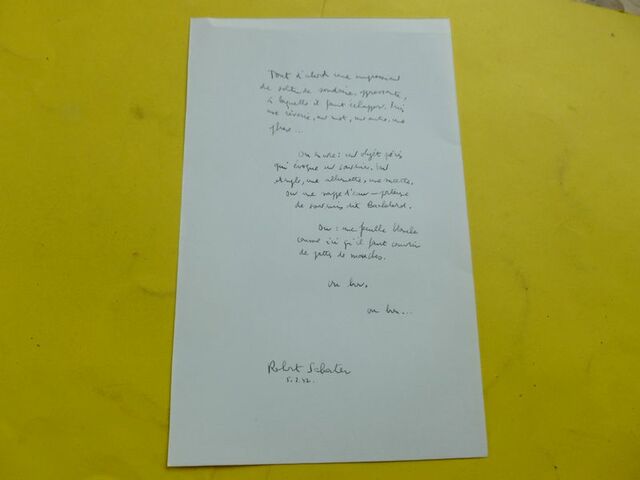 Tout d'abord une impression
de solitude soudaine, oppressante,
à laquelle il faut échapper. Puis
une rêverie, un mot, un autre, une
phrase...
Ou encore : un objet
qui évoque un souvenir. Un
une allumette, une
sur une nappe d'eau — porteuse
de souvenirs dit Bachelard.
Ou : une feuille blanche
comme ici qu'il faut couvrir
de pattes de mouches.
ou bien.
ou bien...
Robert Sabatier
5.2.92.